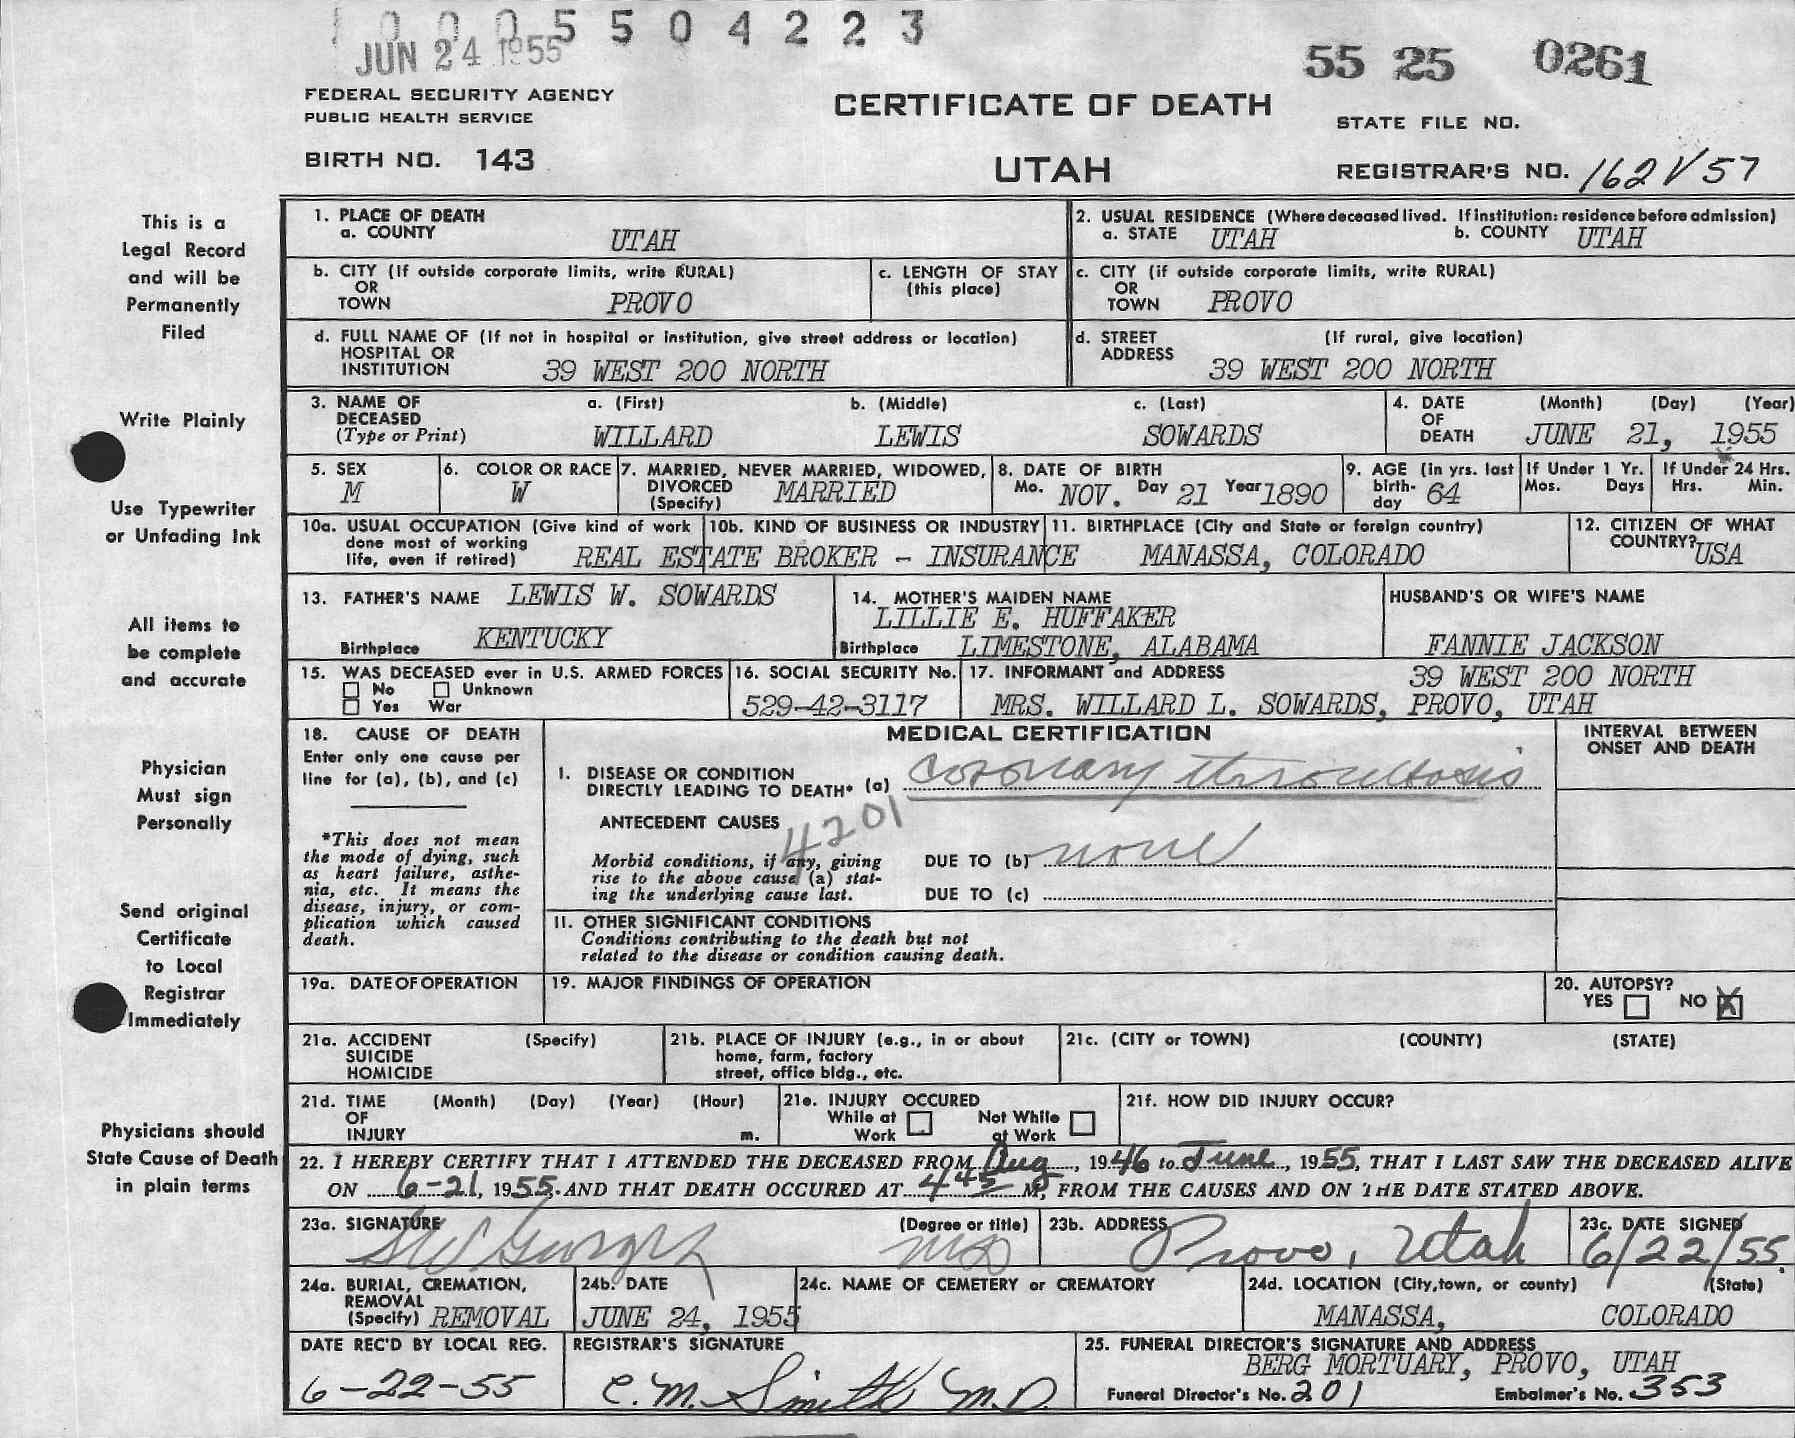 0 0 0 5 5 0 4 2 2 3
JUN 24 1955
55 25 0261
FEDERAL SECURITY AGENCY
PUBLIC HEALTH SERVICE
CERTIFICATE OF DEATH
STATE FILE NO.
BIRTH NO. 143
UTAH
REGISTRAR'S NO. 162 V 57
This is a
Legal Record
and will be
Permanently
Filed
Write Plainly
Use Typewriter
or Unfading Ink
All items to
be complete
and accurate
Physician
Must sign
Personally
Send original
Certificate
to Local
Registrar
Immediately
Physicians should
State Cause of Death
in plain terms
1. PLACE OF DEATH
a. COUNTY UTAH
2. USUAL RESIDENCE (Where deceased lived. If institution: residence before admission)
a. STATE UTAH b. COUNTY UTAH
b. CITY (If outside corporate limits, write RURAL)
OR
TOWN PROVO
c. LENGTH OF STAY
(this place)
c. CITY (if outside corporate limits, write RURAL)
OR
TOWN PROVO
d. FULL NAME OF (If not in hospital or institution, give street address or location)
HOSPITAL OR
INSTITUTION 39 WEST 200 NORTH
d. STREET (If rural, give location)
ADDRESS 39 WEST 200 NORTH
3. NAME OF a. (First) b. (Middle) c. (Last)
DECEASED
(Type or Print) WILLARD LEWIS SOWARDS
4. DATE (Month) (Day) (Year)
OF
DEATH JUNE 21, 1955
5. SEX
M
6. COLOR OR RACE
W
7. MARRIED, NEVER MARRIED, WIDOWED,
DIVORCED MARRIED
(Specify)
8. DATE OF BIRTH
Mo. NOV. Day 21 Year 1890
9. AGE (in yrs. last
birth- 64
day
If Under 1 Yr.
Mos. Days
If Under 24 Hrs.
Hrs. Min.
10a. USUAL OCCUPATION (Give kind of work
done most of working
life, even if retired) REAL ESTATE BROKER - INSURANCE
10b. KIND OF BUSINESS OR INDUSTRY
11. BIRTHPLACE (City and State or foreign country)
MANASSA, COLORADO
12. CITIZEN OF WHAT
COUNTRY? USA
13. FATHER'S NAME LEWIS W. SOWARDS
Birthplace KENTUCKY
14. MOTHER'S MAIDEN NAME
LILLIE E. HUFFAKER
Birthplace LIMESTONE, ALABAMA
HUSBAND'S OR WIFE'S NAME
FANNIE JACKSON
15. WAS DECEASED ever in U.S. ARMED FORCES
No Unknown
Yes War
16. SOCIAL SECURITY No.
529-42-3117
17. INFORMANT and ADDRESS 39 WEST 200 NORTH
MRS. WILLARD L. SOWARDS, PROVO, UTAH
18. CAUSE OF DEATH
Enter only one cause per
line for (a), (b), and (c)
*This does not mean
the mode of dying, such
as heart failure, asthe-
nia, etc. It means the
disease, injury, or com-
plication which caused
death.
MEDICAL CERTIFICATION
INTERVAL BETWEEN
ONSET AND DEATH
I. DISEASE OR CONDITION
DIRECTLY LEADING TO DEATH* (a) Coronary thrombosis
ANTECEDENT CAUSES 4201
Morbid conditions, if any, giving
rise to the above cause (a) stat-
ing the underlying cause last.
DUE TO (b) none
DUE TO (c)
II. OTHER SIGNIFICANT CONDITIONS
Conditions contributing to the death but not
related to the disease or condition causing death.
19a. DATE OF OPERATION
19. MAJOR FINDINGS OF OPERATION
20. AUTOPSY?
YES NO X
21a. ACCIDENT (Specify)
SUICIDE
HOMICIDE
21b. PLACE OF INJURY (e.g., in or about
home, farm, factory
street, office bldg., etc.
21c. (CITY or TOWN) (COUNTY) (STATE)
21d. TIME (Month) (Day) (Year) (Hour)
OF
INJURY m.
21e. INJURY OCCURED
While at Not While
Work at Work
21f. HOW DID INJURY OCCUR?
22. I HEREBY CERTIFY THAT I ATTENDED THE DECEASED FROM Aug, 1946 to June, 1955, THAT I LAST SAW THE DECEASED ALIVE
ON 6-21, 1955, AND THAT DEATH OCCURED AT 4 45 P M, FROM THE CAUSES AND ON THE DATE STATED ABOVE.
23a. SIGNATURE (Degree or title)
MD
23b. ADDRESS
Provo, Utah
23c. DATE SIGNED
6/22/55
24a. BURIAL, CREMATION,
REMOVAL
(Specify) REMOVAL
24b. DATE
JUNE 24, 1955
24c. NAME OF CEMETERY or CREMATORY
24d. LOCATION (City, town, or county) (State)
MANASSA, COLORADO
DATE REC'D BY LOCAL REG.
6-22-55
REGISTRAR'S SIGNATURE
C. M. Smith M.D.
25. FUNERAL DIRECTOR'S SIGNATURE AND ADDRESS
BERG MORTUARY, PROVO, UTAH
Funeral Director's No. 201 Embalmer's No. 353